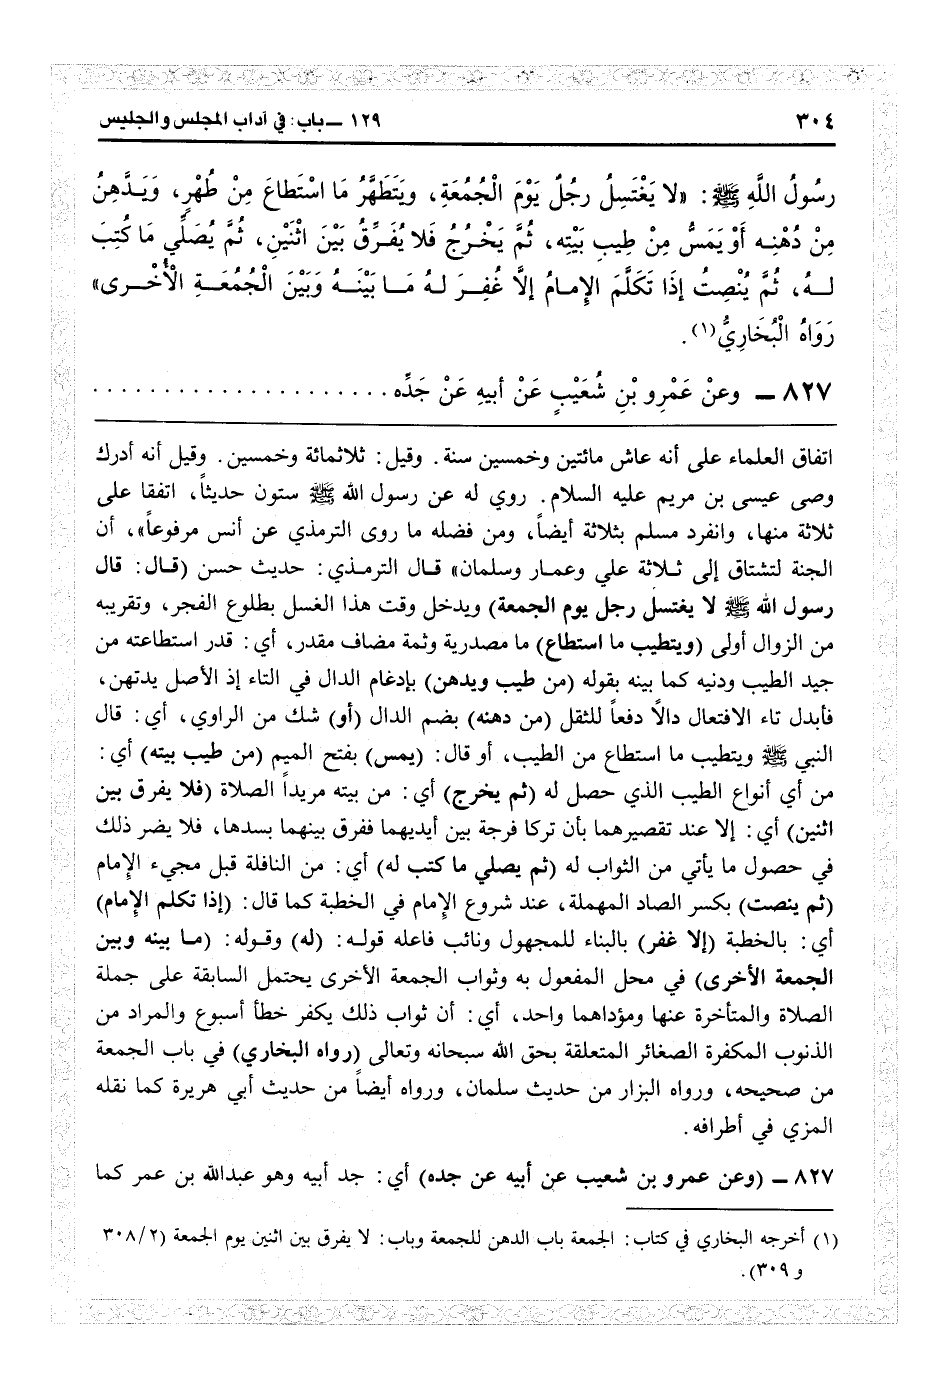 ٣٠٤ ١٢٩ ـ باب: في آداب المجلس والجليس
رسُولُ اللَّهِ ﷺ: «لا يَغْتَسِلُ رجُلٌ يَوْمَ الْجُمُعَةِ، ويَتَطَهَّرُ مَا اسْتَطاعَ مِنْ طُهْرٍ، وَيَدَّهِنُ
مِنْ دُهْنِه أَوْ يَمَسُّ مِنْ طِيبِ بَيْتِه، ثُمَّ يَخْرُجُ فَلا يُفَرِّقُ بَيْنَ اثْنَيْنِ، ثُمَّ يُصَلِّي مَا كُتِبَ
لـهُ، ثُمَّ يُنْصِتُ إذَا تَكَلَّمَ الإمامُ إلَّا غُفِرَ لـهُ مَـا بَيْنَـهُ وَبَيْنَ الْجُمُعَـةِ الْأُخْـرى»
رَوَاهُ الْبُخَارِيُّ(١).
٨٢٧ ـ وعنْ عَمْرِو بْنِ شُعَيْبٍ عَنْ أبيهِ عَنْ جَدِّه . . . . . . . . . . . . . . . . . . . . .
اتفاق العلماء على أنه عاش مائتين وخمسين سنة. وقيل: ثلاثمائة وخمسين. وقيل أنه أدرك
وصى عيسى بن مريم عليه السلام. روي له عن رسول الله ﷺ ستون حديثاً، اتفقا على
ثلاثة منها، وانفرد مسلم بثلاثة أيضاً، ومن فضله ما روى الترمذي عن أنس مرفوعاً»، أن
الجنة لتشتاق إلى ثـلاثة علي وعمـار وسلمان» قـال الترمـذي: حديث حسن (قـال: قال
رسول الله ﷺ لا يغتسل رجل يوم الجمعة) ويدخل وقت هذا الغسل بطلوع الفجر، وتقريبه
من الزوال أولى (ويتطيب ما استطاع) ما مصدرية وثمة مضاف مقدر، أي: قدر استطاعته من
جيد الطيب ودنيه كما بينه بقوله (من طيب ويدهن) بإدغام الدال في التاء إذ الأصل يدتهن،
فأبدل تاء الافتعال دالاً دفعاً للثقل (من دهنه) بضم الدال (أو) شك من الراوي، أي: قال
النبي ﷺ ويتطيب ما استطاع من الطيب، أو قال: (يمس) بفتح الميم (من طيب بيته) أي:
من أي أنواع الطيب الذي حصل له (ثم يخرج) أي: من بيته مريداً الصلاة (فلا يفرق بين
اثنين) أي: إلا عند تقصيرهما بأن تركا فرجة بين أيديهما ففرق بينهما بسدها، فلا يضر ذلك
في حصول ما يأتي من الثواب له (ثم يصلي ما كتب له) أي: من النافلة قبل مجيء الإمام
(ثم ينصت) بكسر الصاد المهملة، عند شروع الإمام في الخطبة كما قال: (إذا تكلم الإمام)
أي: بالخطبة (إلا غفر) بالبناء للمجهول ونائب فاعله قولـه: (له) وقـوله: (مـا بينه وبين
الجمعة الأخرى) في محل المفعول به وثواب الجمعة الأخرى يحتمل السابقة على جملة
الصلاة والمتأخرة عنها ومؤداهما واحد، أي: أن ثواب ذلك يكفر خطأ أسبوع والمراد من
الذنوب المكفرة الصغائر المتعلقة بحق الله سبحانه وتعالى (رواه البخاري) في باب الجمعة
من صحيحه، ورواه البزار من حديث سلمان، ورواه أيضاً من حديث أبي هريرة كما نقله
المزي في أطرافه.
٨٢٧ ـ (وعن عمرو بن شعيب عن أبيه عن جده) أي: جد أبيه وهو عبدالله بن عمر كما
(١) أخرجه البخاري في كتاب: الجمعة باب الدهن للجمعة وباب: لا يفرق بين اثنين يوم الجمعة (٣٠٨/٢
و ٣٠٩).